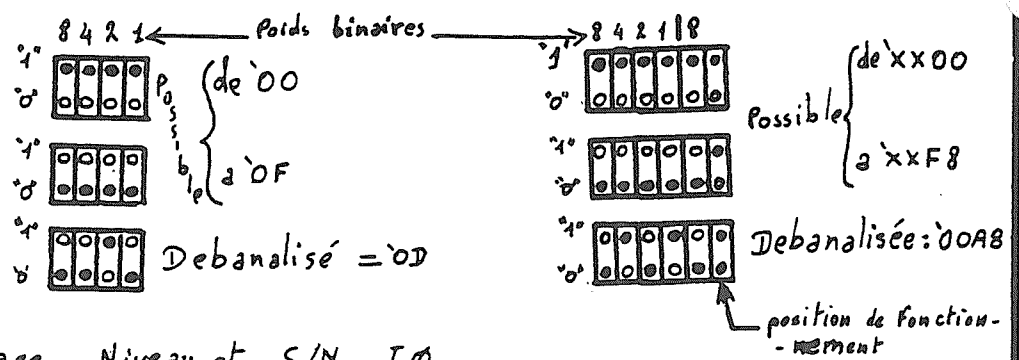 8 4 2 1 ← Poids binaires → 8 4 2 1 | 8
"1"
"0"
Possible
de '00
a '0F
"1"
"0"
"1"
"0"
Debanalisé = '0D
"1"
"0"
Possible
de 'XX00
a 'XXF8
"1"
"0"
"1"
"0"
Debanalisée : '00A8
position de Fonction-
-nement
Niveau et S/N